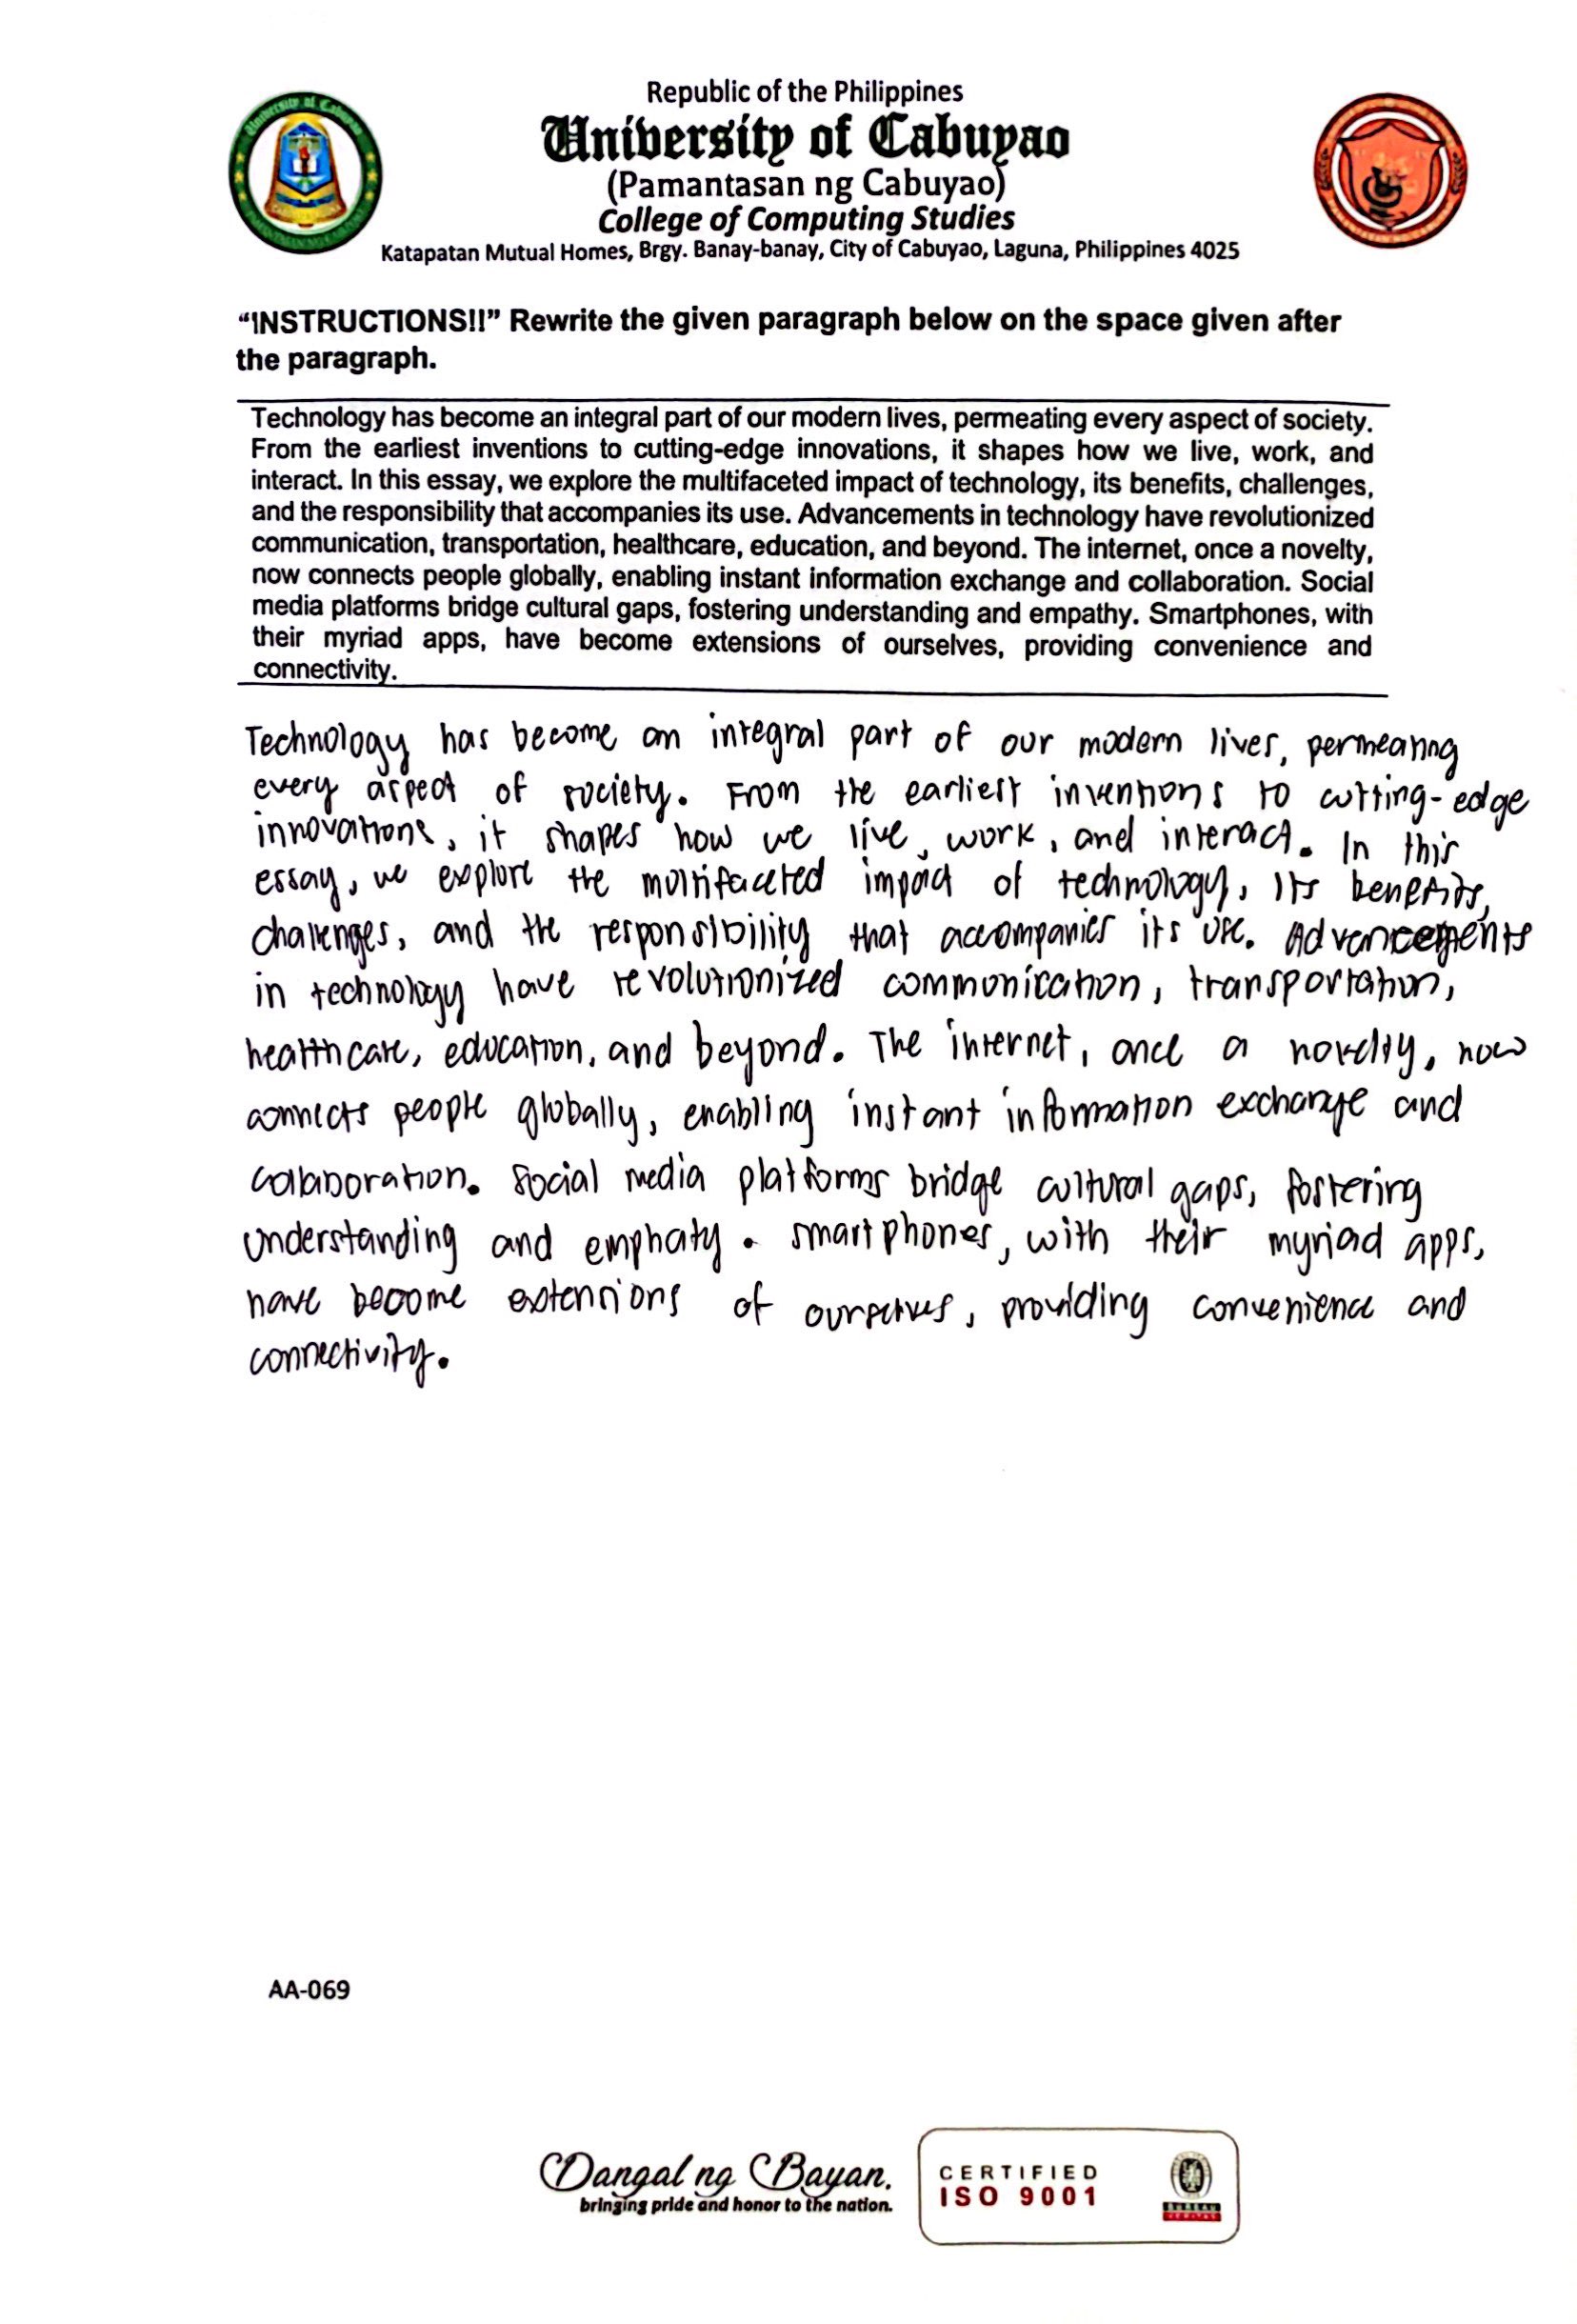 Republic of the Philippines
University of Cabuyao
(Pamantasan ng Cabuyao)
College of Computing Studies
Katapatan Mutual Homes, Brgy. Banay-banay, City of Cabuyao, Laguna, Philippines 4025
“INSTRUCTIONS!!” Rewrite the given paragraph below on the space given after
the paragraph.
Technology has become an integral part of our modern lives, permeating every aspect of society.
From the earliest inventions to cutting-edge innovations, it shapes how we live, work, and
interact. In this essay, we explore the multifaceted impact of technology, its benefits, challenges,
and the responsibility that accompanies its use. Advancements in technology have revolutionized
communication, transportation, healthcare, education, and beyond. The internet, once a novelty,
now connects people globally, enabling instant information exchange and collaboration. Social
media platforms bridge cultural gaps, fostering understanding and empathy. Smartphones, with
their myriad apps, have become extensions of ourselves, providing convenience and
connectivity.
Technology has become an integral part of our modern lives, permeating
every aspect of society. From the earliest inventions to cutting-edge
innovations, it shapes how we live, work, and interact. In this
essay, we explore the multifaceted impact of technology, its benefits,
challenges, and the responsibility that accompanies its use. Advancements
in technology have revolutionized communication, transportation,
healthcare, education, and beyond. The internet, once a novelty, now
connects people globally, enabling instant information exchange and
collaboration. Social media platforms bridge cultural gaps, fostering
understanding and emphaty. smartphones, with their myriad apps,
have become extensions of ourselves, providing convenience and
connectivity.
AA-069
Dangal ng Bayan.
bringing pride and honor to the nation.
CERTIFIED
ISO 9001
BUREAU
VERITAS